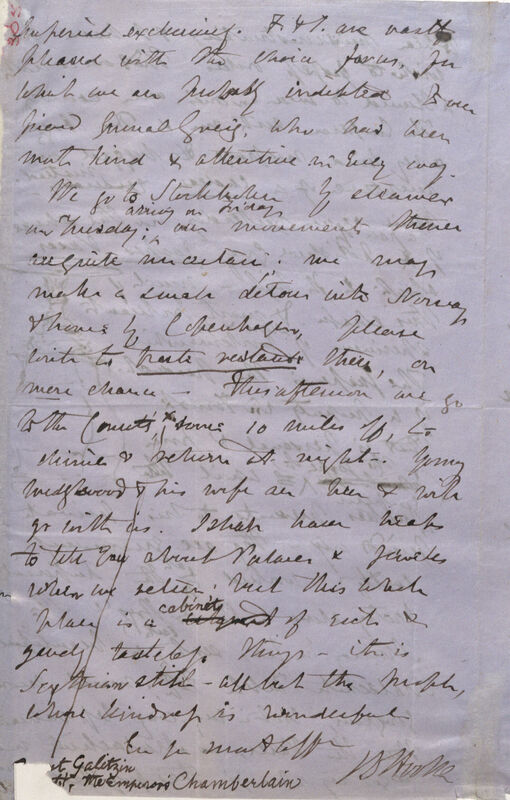 Imperial exclusively. F & T. are vastly
pleased with the choice focus, for
which we are probably indebted to our
friend General Greig, who has been
most kind & attentive in every way.
We go to Stockholm by steamer
on Tuesday, arriving on Friday; our movements thence
are quite uncertain; we may
make a small detour into Norway
& home by Copenhagen, please
write to poste restante there, on
mere chance – This afternoon we go
to the Count's, * some 10 miles off, to
dinner & return at night. Young
Wedgwood & his wife are here & will
go with us. I shall have heaps
to tell you about Palaces & jewels
when we return; but this whole
place is a cabinet of such &
gaudy tasteless things – it is
Scythian still – all but the people,
whose kindness is wonderful
Ever yr most aff
J D Hooker
Galitzin
the Emperor's Chamberlain